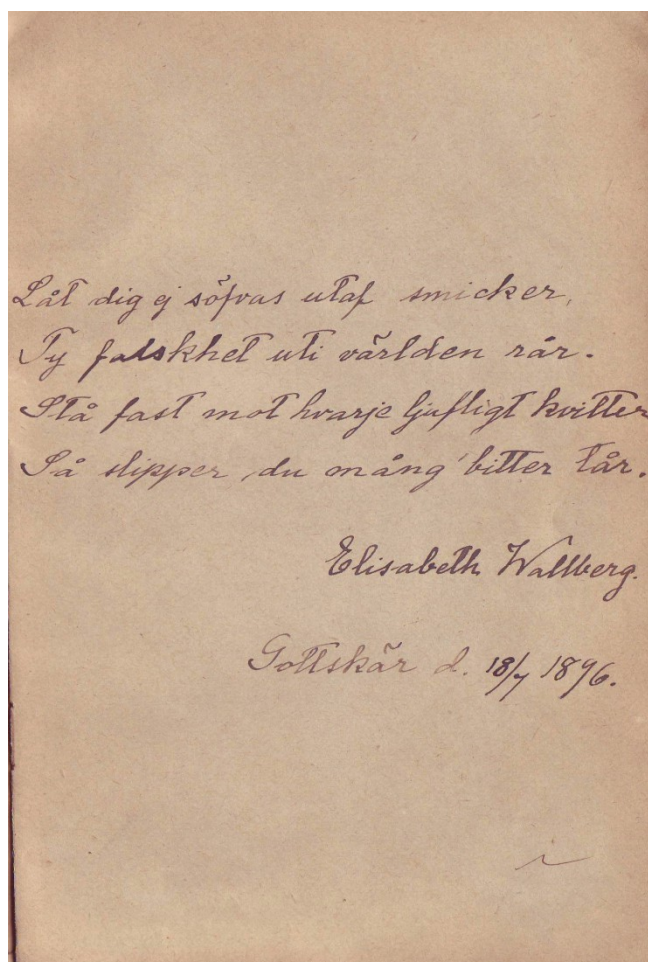 Låt dig ej söfvas utaf smicker,
Ty falskhet uti världen rår.
Stå fast mot hvarje ljufligt kvitter
Så slipper du mång' bitter tår.
Elisabeth Wallberg.
Gottskär d. 18/7 1896.